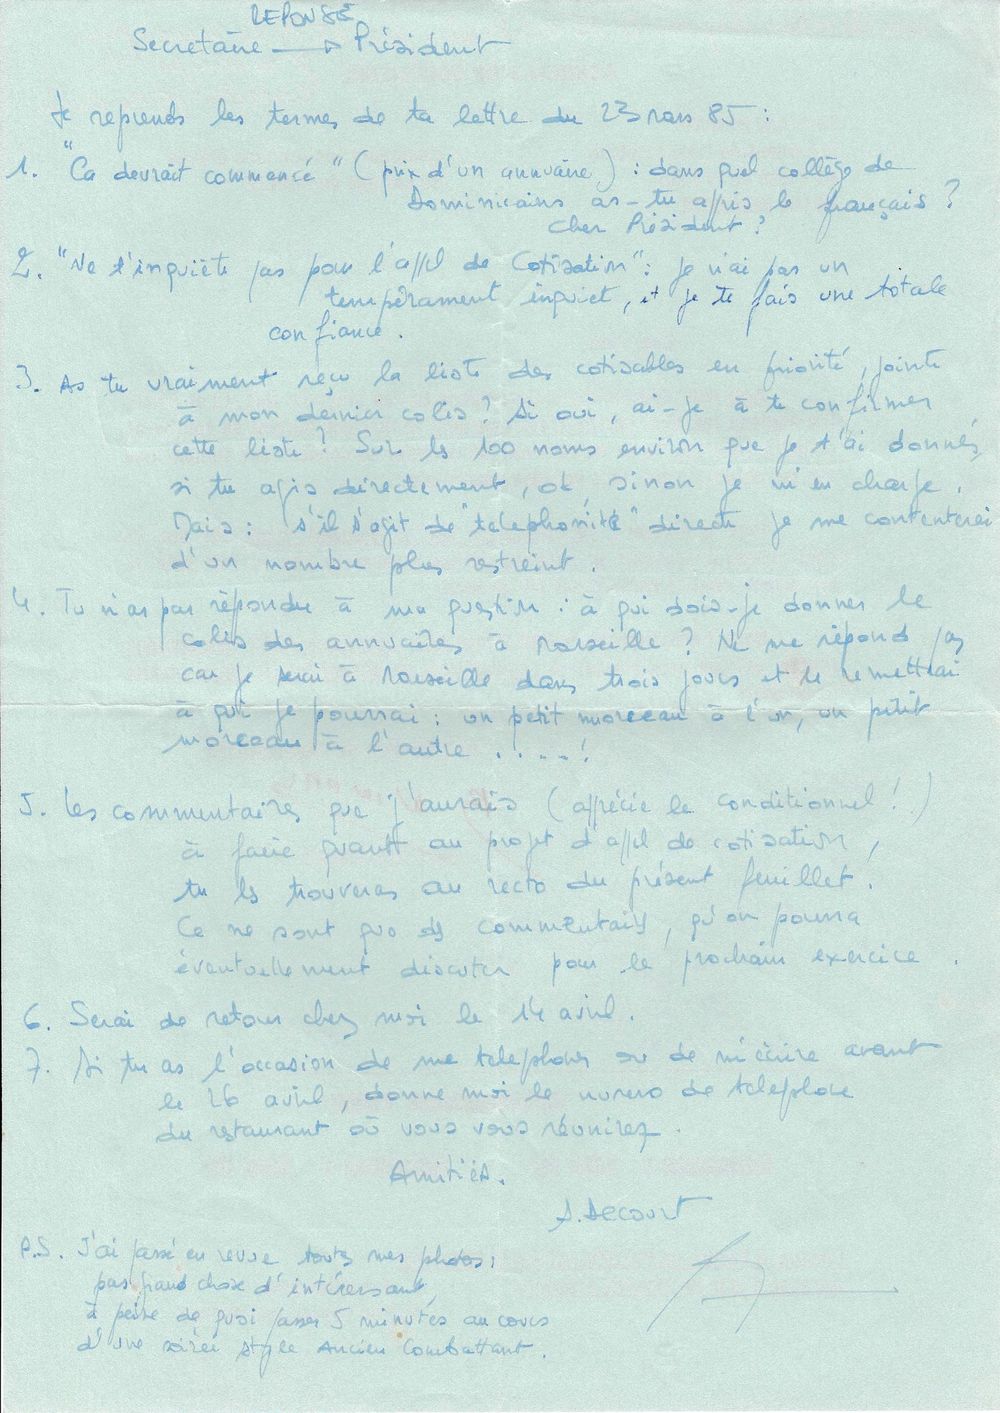 REPONSE
Secretaire → Président
Je reprends les termes de ta lettre du 23 mars 85 :
1. "Ca devrait commencé" (prix d'un annuaire) : dans quel collège de
Dominicains as-tu appris le français ?
Cher Président ?
2. "Ne t'inquiète pas pour l'appel de Cotisation" : je n'ai pas un
tempérament inquiet, et je te fais une totale
confiance.
3. As tu vraiment reçu la liste des cotisables en priorité, jointe
à mon dernier colis ? Si oui, ai-je à te confirmer
cette liste ? Sur les 100 noms environ que je t'ai donnés,
si tu agis directement, ok, sinon je m'en charge.
Mais : s'il s'agit de "telephonité" directe je me contenterai
d'un nombre plus restreint.
4. Tu n'as pas répondu à ma question : à qui dois-je donner le
colis des annuaires à Marseille ? Ne me répond pas
car je serai à Marseille dans trois jours et le remettrai
à qui je pourrai : un petit morceau à l'un, un petit
morceau à l'autre ....!
5. Les commentaires que j'aurais (apprécie le conditionnel !)
à faire quant au projet d'appel de cotisation,
tu les trouveras au recto du présent feuillet.
Ce ne sont que des commentaires, qu'on pourra
éventuellement discuter pour le prochain exercice.
6. Serai de retour chez moi le 14 avril.
7. Si tu as l'occasion de me telephoner ou de m'écrire avant
le 26 avril, donne moi le numero de telephone
du restaurant où vous vous réunirez.
Amitiés.
A. Decourt
P.S. J'ai passé en revue toutes mes photos ;
pas grand chose d'intéressant,
à peine de quoi passer 5 minutes au cours
d'une soirée style Ancien Combattant.